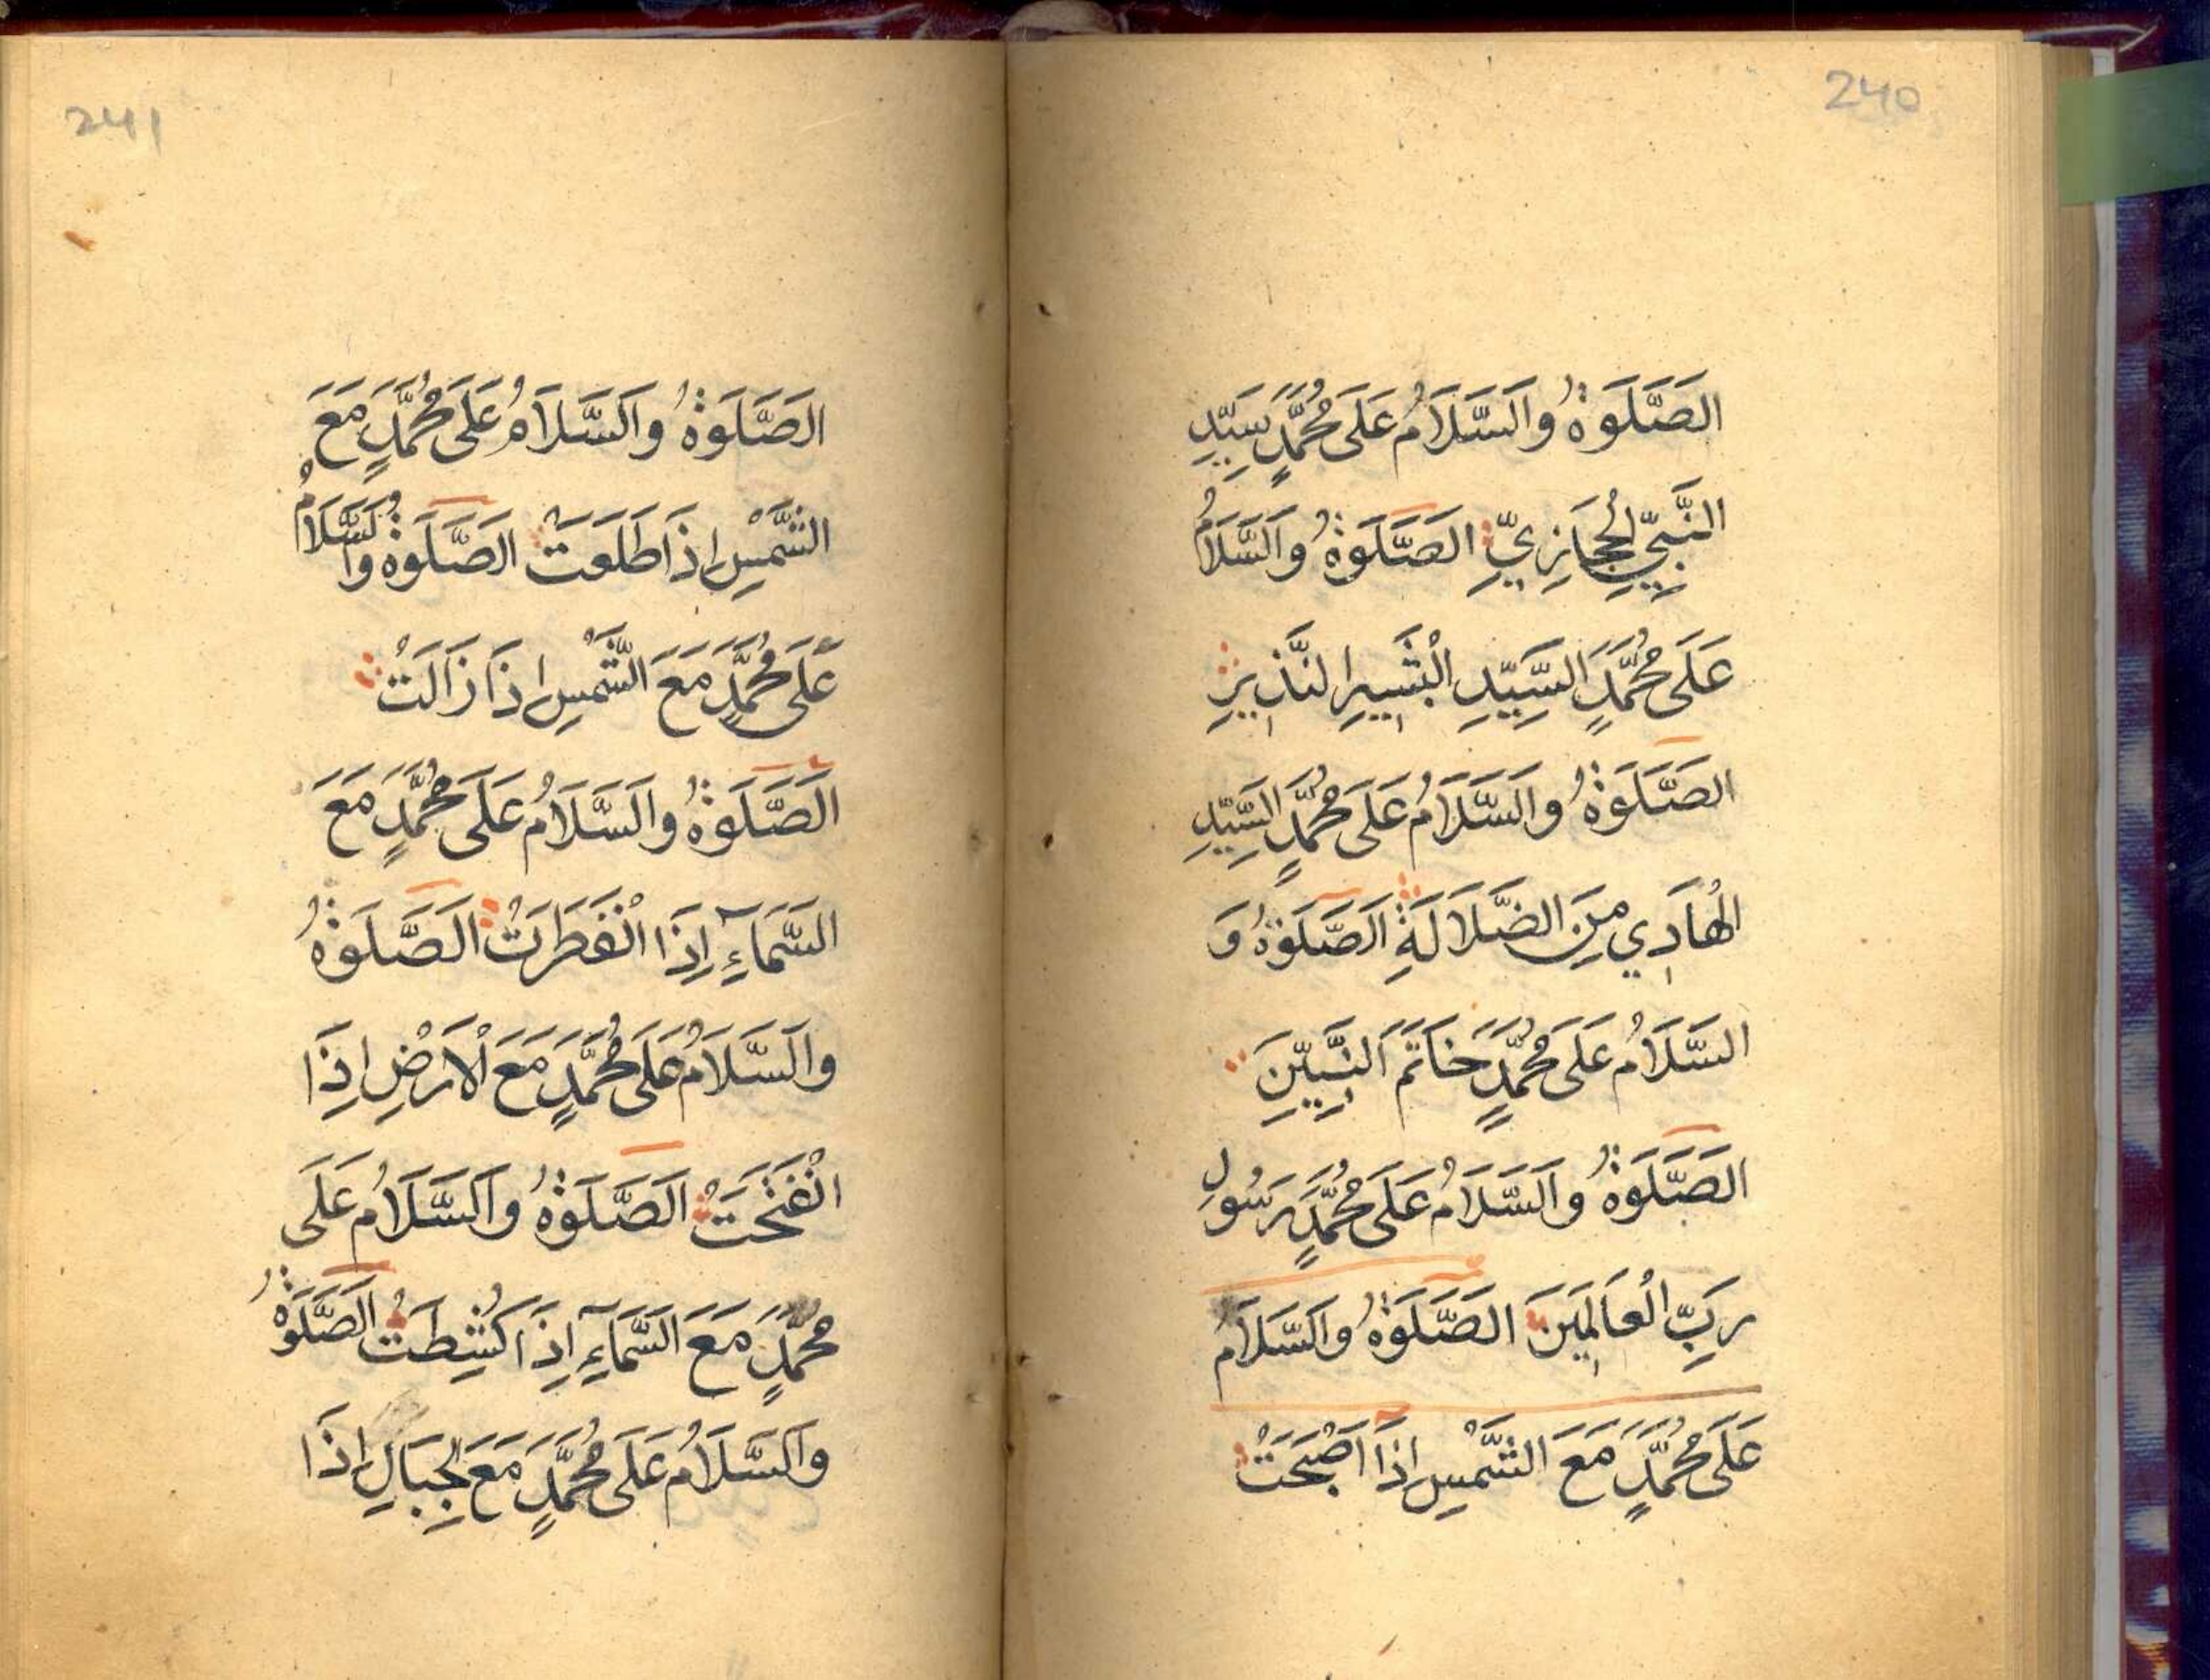 240
الصَّلَوٰةُ وَالسَّلَامُ عَلَى مُحَمَّدٍ سَيِّدِ
النَّبِيِّ الْحِجَازِيِّ الصَّلَوٰةُ وَالسَّلَامُ
عَلَى مُحَمَّدٍ السَّيِّدِ الْبَشِيرِ النَّذِيرِ
الصَّلَوٰةُ وَالسَّلَامُ عَلَى مُحَمَّدٍ السَّيِّدِ
الْهَادِي مِنَ الضَّلَالَةِ الصَّلَوٰةُ وَ
السَّلَامُ عَلَى مُحَمَّدٍ خَاتَمَ النَّبِيِّنَ
الصَّلَوٰةُ وَالسَّلَامُ عَلَى مُحَمَّدٍ رَسُولِ
رَبِّ الْعَالَمِينَ الصَّلَوٰةُ وَالسَّلَامُ
عَلَى مُحَمَّدٍ مَعَ الشَّمْسِ إِذَا اَصْبَحَتْ
241
الصَّلَوٰةُ وَالسَّلَامُ عَلَى مُحَمَّدٍ مَعَ
الشَّمْسِ إِذَا طَلَعَتْ الصَّلَوٰةُ وَالسَّلَامُ
عَلَى مُحَمَّدٍ مَعَ الشَّمْسِ إِذَا زَالَتْ
الصَّلَوٰةُ وَالسَّلَامُ عَلَى مُحَمَّدٍ مَعَ
السَّمَآءِ إِذَا انْفَطَرَتْ الصَّلَوٰةُ
وَالسَّلَامُ عَلَى مُحَمَّدٍ مَعَ الْاَرْضِ إِذَا
انْفَتَحَتْ الصَّلَوٰةُ وَالسَّلَامُ عَلَى
مُحَمَّدٍ مَعَ السَّمَآءِ إِذَا كُشِطَتْ الصَّلَوٰةُ
وَالسَّلَامُ عَلَى مُحَمَّدٍ مَعَ الْجِبَالِ إِذَا